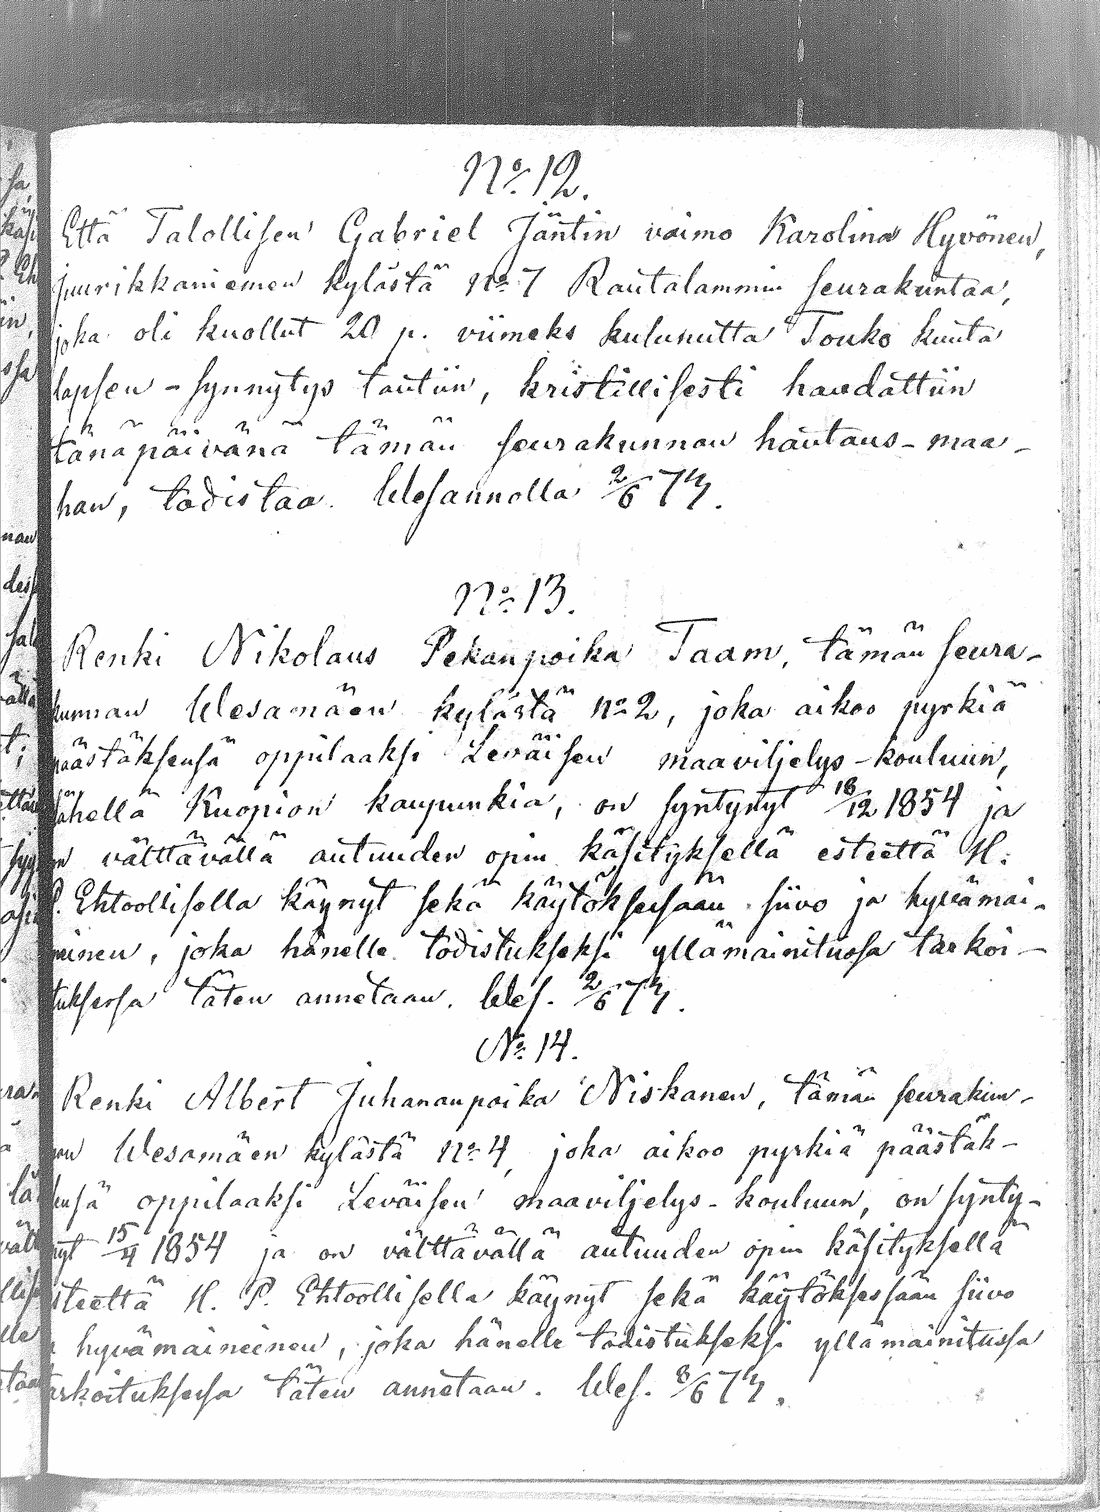 No 12.
Että Talollisen Gabriel Jäntin vaimo Karolina Hyvönen,
juurikkaniemen kylästä No 7 Rautalammin seurakuntaa,
joka oli kuollut 20 p. viimeks kulunutta Touko kuuta
lapsen-synnytys tautiin, kristillisesti haudattiin
tänäpäivänä tämän seurakunnan hautaus-maa-
han, todistaa. Wesannolla 2/6
No 13.
Renki Nikolaus Pekanpoika Taam, tämän seura-
kunnan Wesamäen kylästä No 2, joka aikoo pyrkiä
päästäksensä oppilaaksi Leväisen maaviljelys-kouluun,
lähellä Kuopion kaupunkia, on syntynyt 18/12 1854 ja
on välttävällä autuuden opin käsityksellä esteettä H.
P. Ehtoollisella käynyt sekä käytöksessään siivo ja hyvämai-
neinen, joka hänelle todistukseksi yllämainitussa tarkoi-
tuksessa täten annetaan. Wes. 2/6
No 14.
Renki Albert Juhananpoika Niskanen, tämän seurakun-
nan Wesamäen kylästä No 4, joka aikoo pyrkiä päästäk-
sensä oppilaaksi Leväisen maaviljelys-kouluun, on synty-
nyt 15/4 1854 ja on välttävällä autuuden opin käsityksellä
esteettä H. P. Ehtoollisella käynyt sekä käytöksessään siivo
hyvämaineinen, joka hänelle todistukseksi yllämainitussa
tarkoituksessa täten annetaan. Wes. 8/6